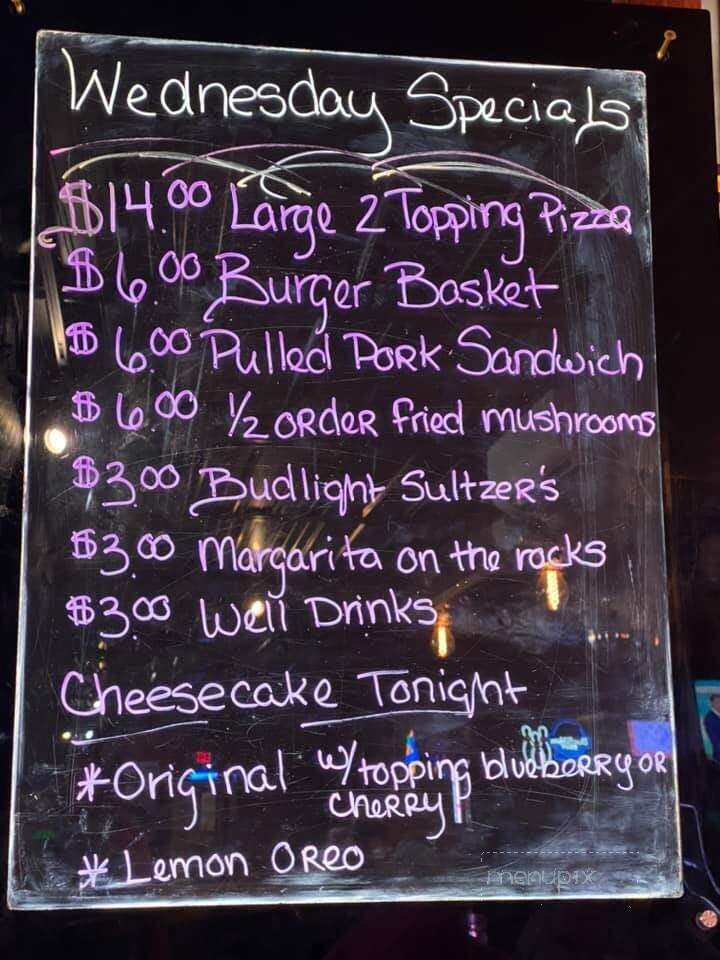 Wednesday Specials
$14.00 Large 2 Topping Pizza
$6.00 Burger Basket
$6.00 Pulled Pork Sandwich
$6.00 1/2 order fried mushrooms
$3.00 Budlight Sultzer's
$3.00 Margarita on the rocks
$3.00 Well Drinks
Cheesecake Tonight
*Original w/topping blueberry or
cherry
* Lemon Oreo
menupix